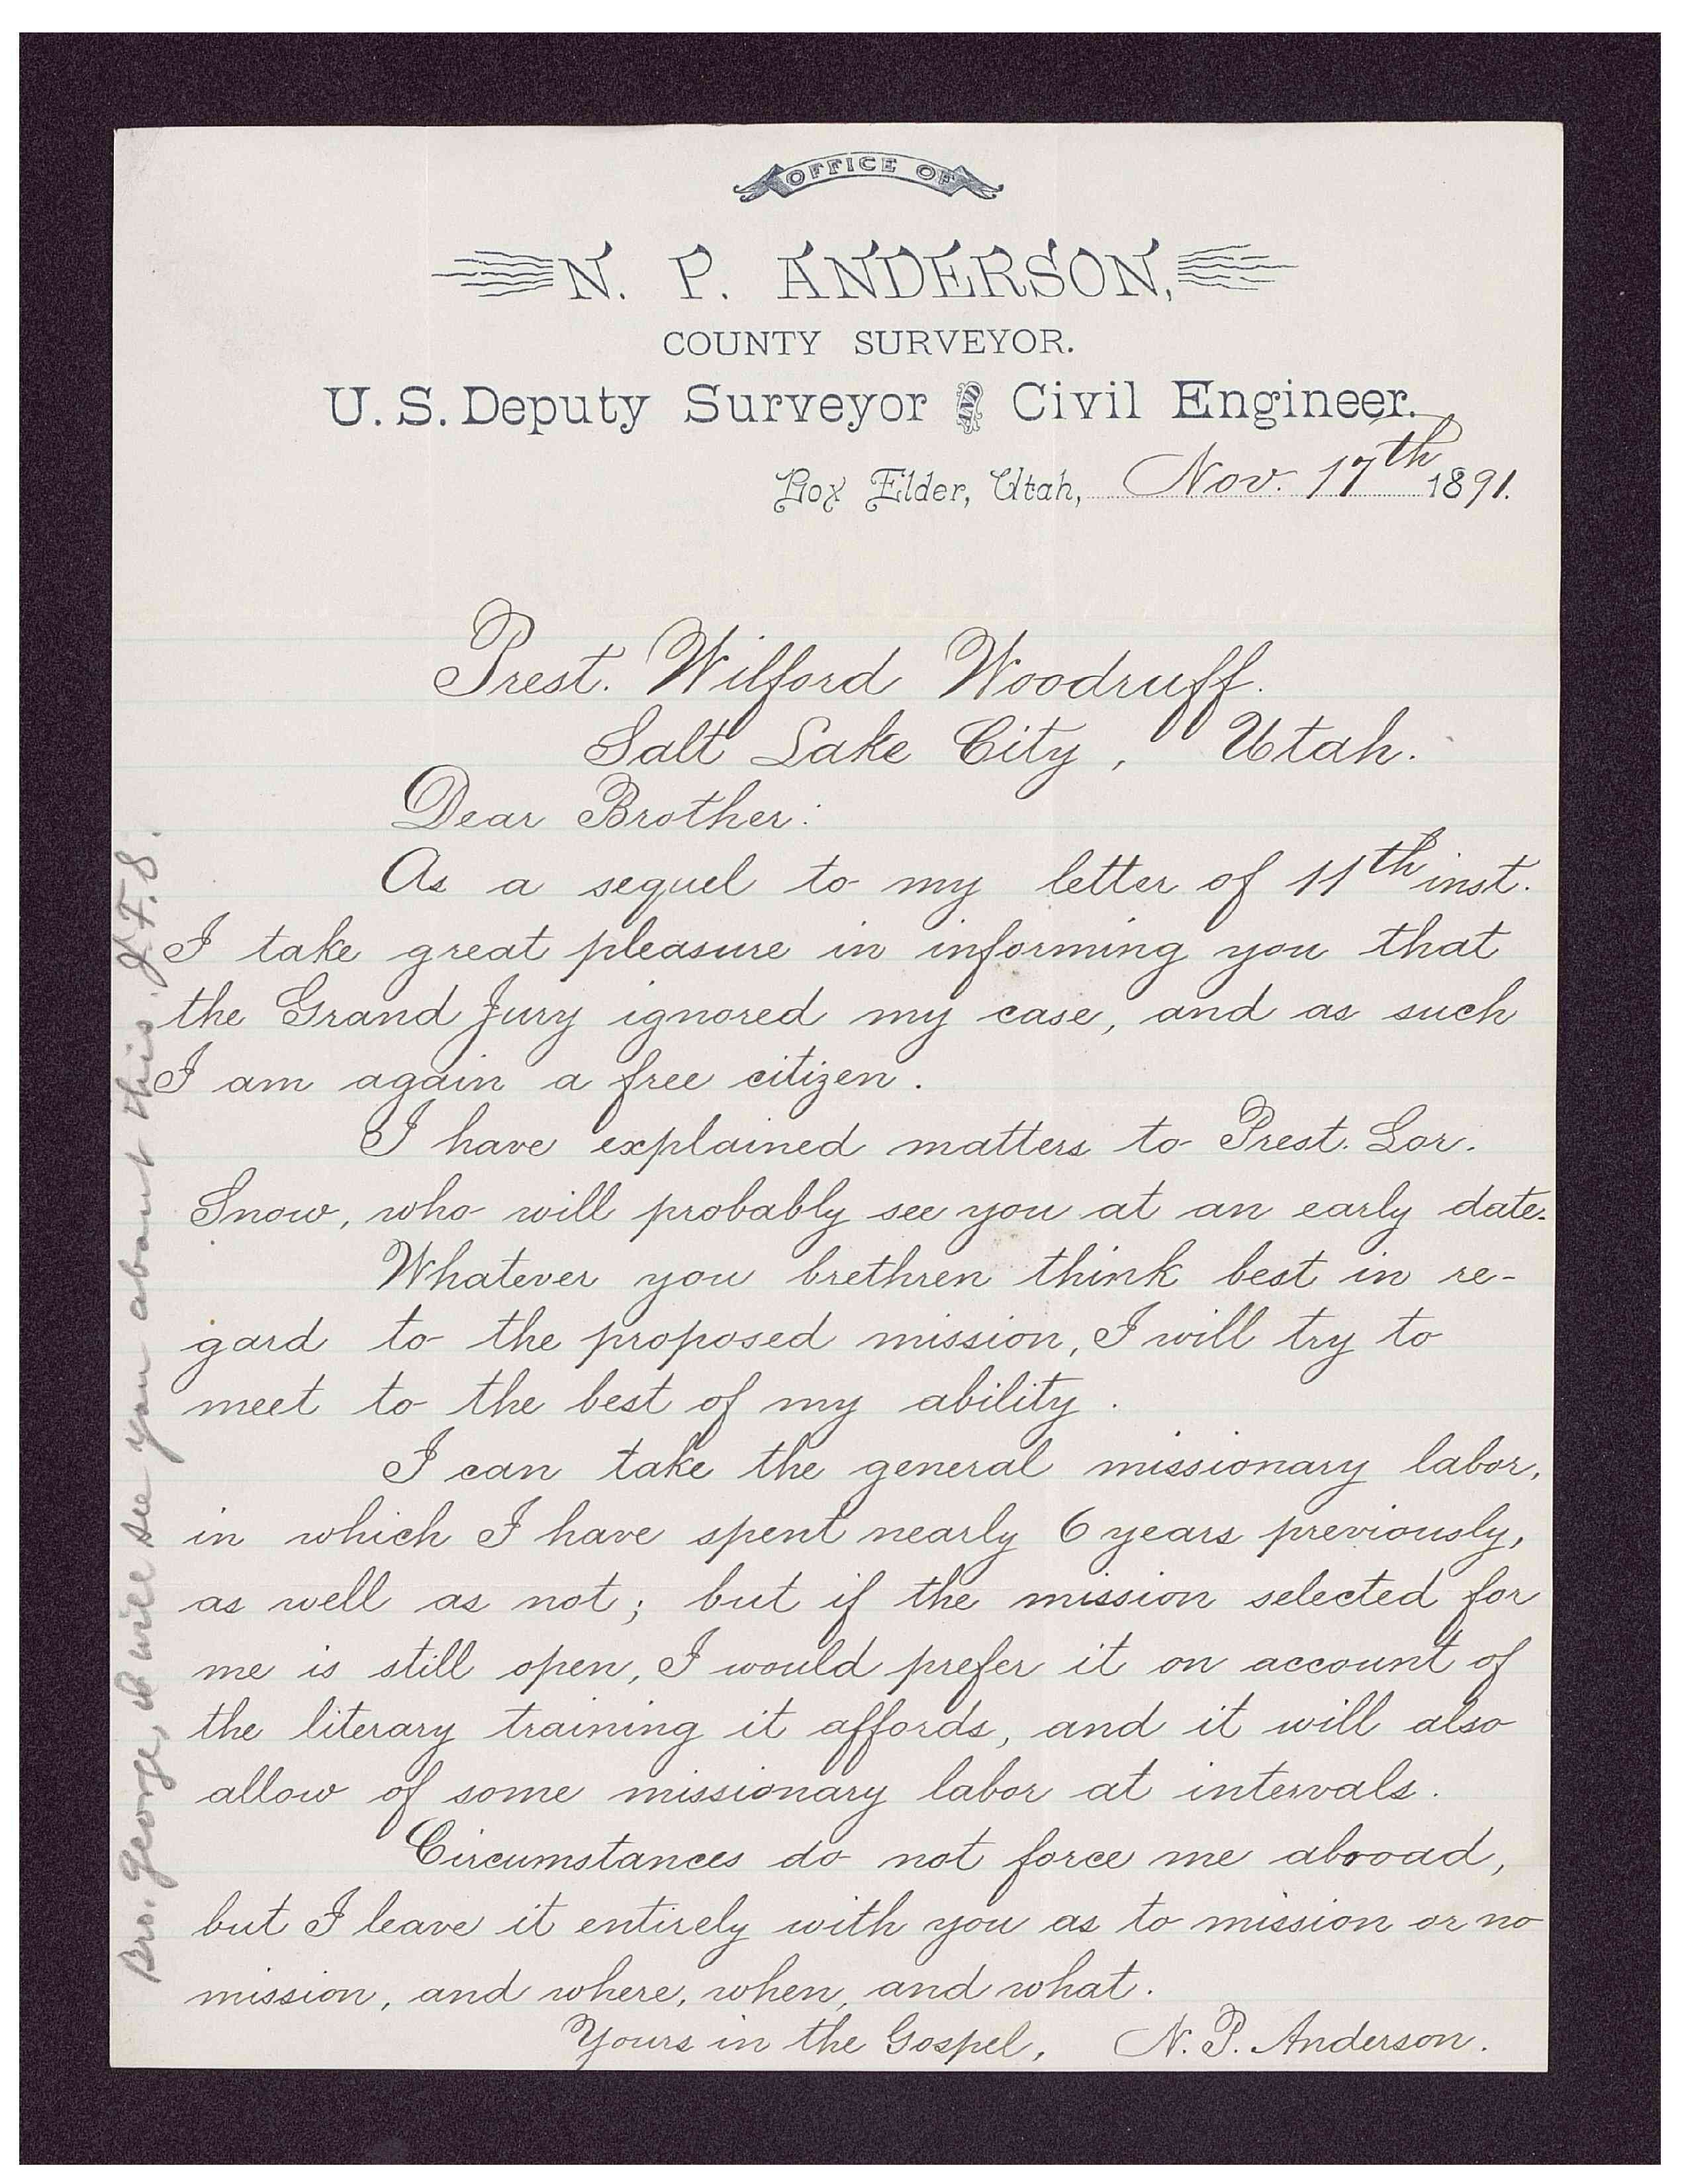 OFFICE OF
N. P. ANDERSON,
COUNTY SURVEYOR.
U. S. Deputy Surveyor & Civil Engineer.
Box Elder, Utah, Nov. 17th 1891.
Prest. Wilford Woodruff.
Salt Lake City, Utah.
Dear Brother:
As a sequel to my letter of 11th inst.
I take great pleasure in informing you that
the Grand Jury ignored my case, and as such
I am again a free citizen.
I have explained matters to Prest. Lor.
Snow, who will probably see you at an early date.
Whatever you brethren think best in re-
gard to the proposed mission, I will try to
meet to the best of my ability.
I can take the general missionary labor,
in which I have spent nearly 6 years previously,
as well as not; but if the mission selected for
me is still open, I would prefer it on account of
the literary training it affords, and it will also
allow of some missionary labor at intervals.
Circumstances do not force me abroad,
but I leave it entirely with you as to mission or no
mission, and where, when, and what.
Yours in the Gospel, N. P. Anderson.
Bro. George, will see you about this. J. F. S.